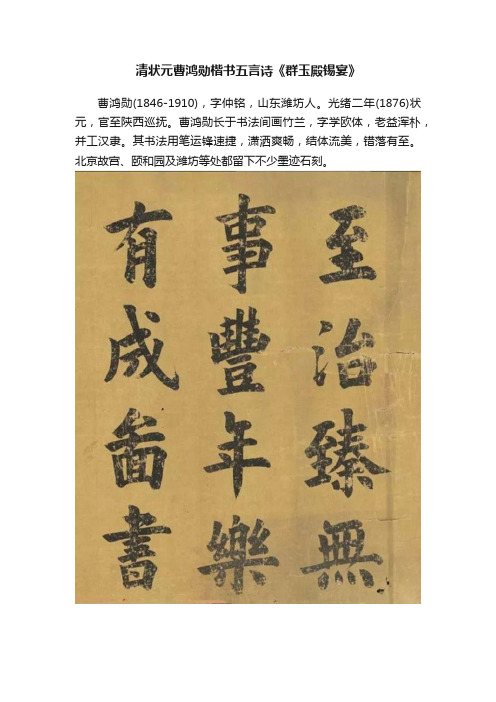 清状元曹鸿勋楷书五言诗《群玉殿锡宴》
曹鸿勋(1846-1910)，字仲铭，山东潍坊人。光绪二年(1876)状
元，官至陕西巡抚。曹鸿勋长于书法间画竹兰，字学欧体，老益浑朴，
并工汉隶。其书法用笔运锋速捷，潇洒爽畅，结体流美，错落有至。
北京故宫、颐和园及潍坊等处都留下不少墨迹石刻。
至治臻無
事豐年樂
有成啚書